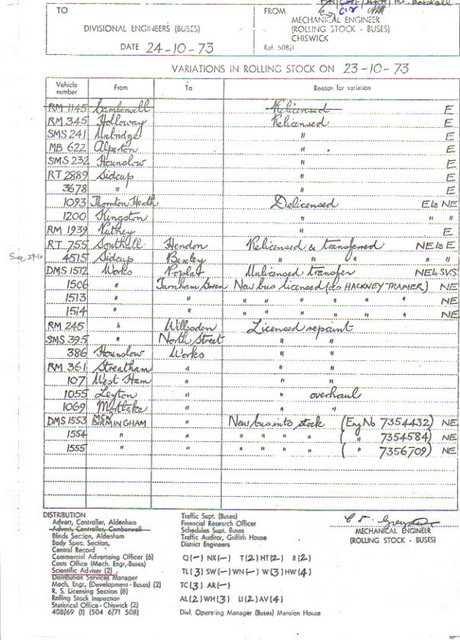 TO
DIVISIONAL ENGINEERS (BUSES)
DATE 24-10-73
FROM
MECHANICAL ENGINEER
(ROLLING STOCK - BUSES)
CHISWICK
Ref. 508/1
VARIATIONS IN ROLLING STOCK ON 23-10-73
Vehicle number From To Reason for variation
RM 1145 Camberwell Relicensed E
RM 345 Holloway Relicensed E
SMS 241 Uxbridge " E
MB 622 Alperton " E
SMS 232 Hounslow " E
RT 2889 Sidcup " E
3678 " " E
1093 Thornton Heath Delicensed E to NE
1200 Kingston " " "
RM 1939 Putney " E
RT 755 Southall Hendon Relicensed & transferred NE to E
4515 Sidcup Bexley " " E
DMS 1512 Works Poplar Unlicensed transfer NE to SVS
1506 " Turnham Green New bus licensed (as HACKNEY TRAINER) NE
1513 " " " " " " " NE
1514 " " " " " " " NE
RM 245 " Willesden Licensed repaint
SMS 395 " North Street " "
386 Hounslow Works " "
RM 361 Streatham " " "
107 West Ham " " "
1055 Leyton " " overhaul
1069 Mortlake " " "
DMS 1553 MCW BIRMINGHAM " New bus into stock (Eng No 7354432) NE
1554 " " " " " " ( " " 7354584) NE
1555 " " " " " " ( " " 7356709) NE
DISTRIBUTION
Advert. Controller, Aldenham
Advert. Controller, Camberwell
Blinds Section, Aldenham
Body Spec. Section,
Central Record
Commercial Advertising Officer (6)
Costs Office (Mech. Engr-Buses)
Scientific Adviser (2)
Distribution Services Manager
Mech. Engr. (Development - Buses) (2)
R. S. Licensing Section (8)
Rolling Stock Inspection
Statistical Office - Chiswick (2)
408/69 (1) (504 6/71 508)
Traffic Supt. (Buses)
Financial Research Officer
Schedules Supt. Buses
Traffic Auditor, Griffith House
District Engineers
Q (-) NX (-) T (2) HT (2) R (2)
TL (3) SW (-) WN (-) W (3) HW (4)
TC (3) AR (-)
AL (2) WH (3) U (2) AV (4)
Divl. Operating Manager (Buses) Mansion House
MECHANICAL ENGINEER
(ROLLING STOCK - BUSES)